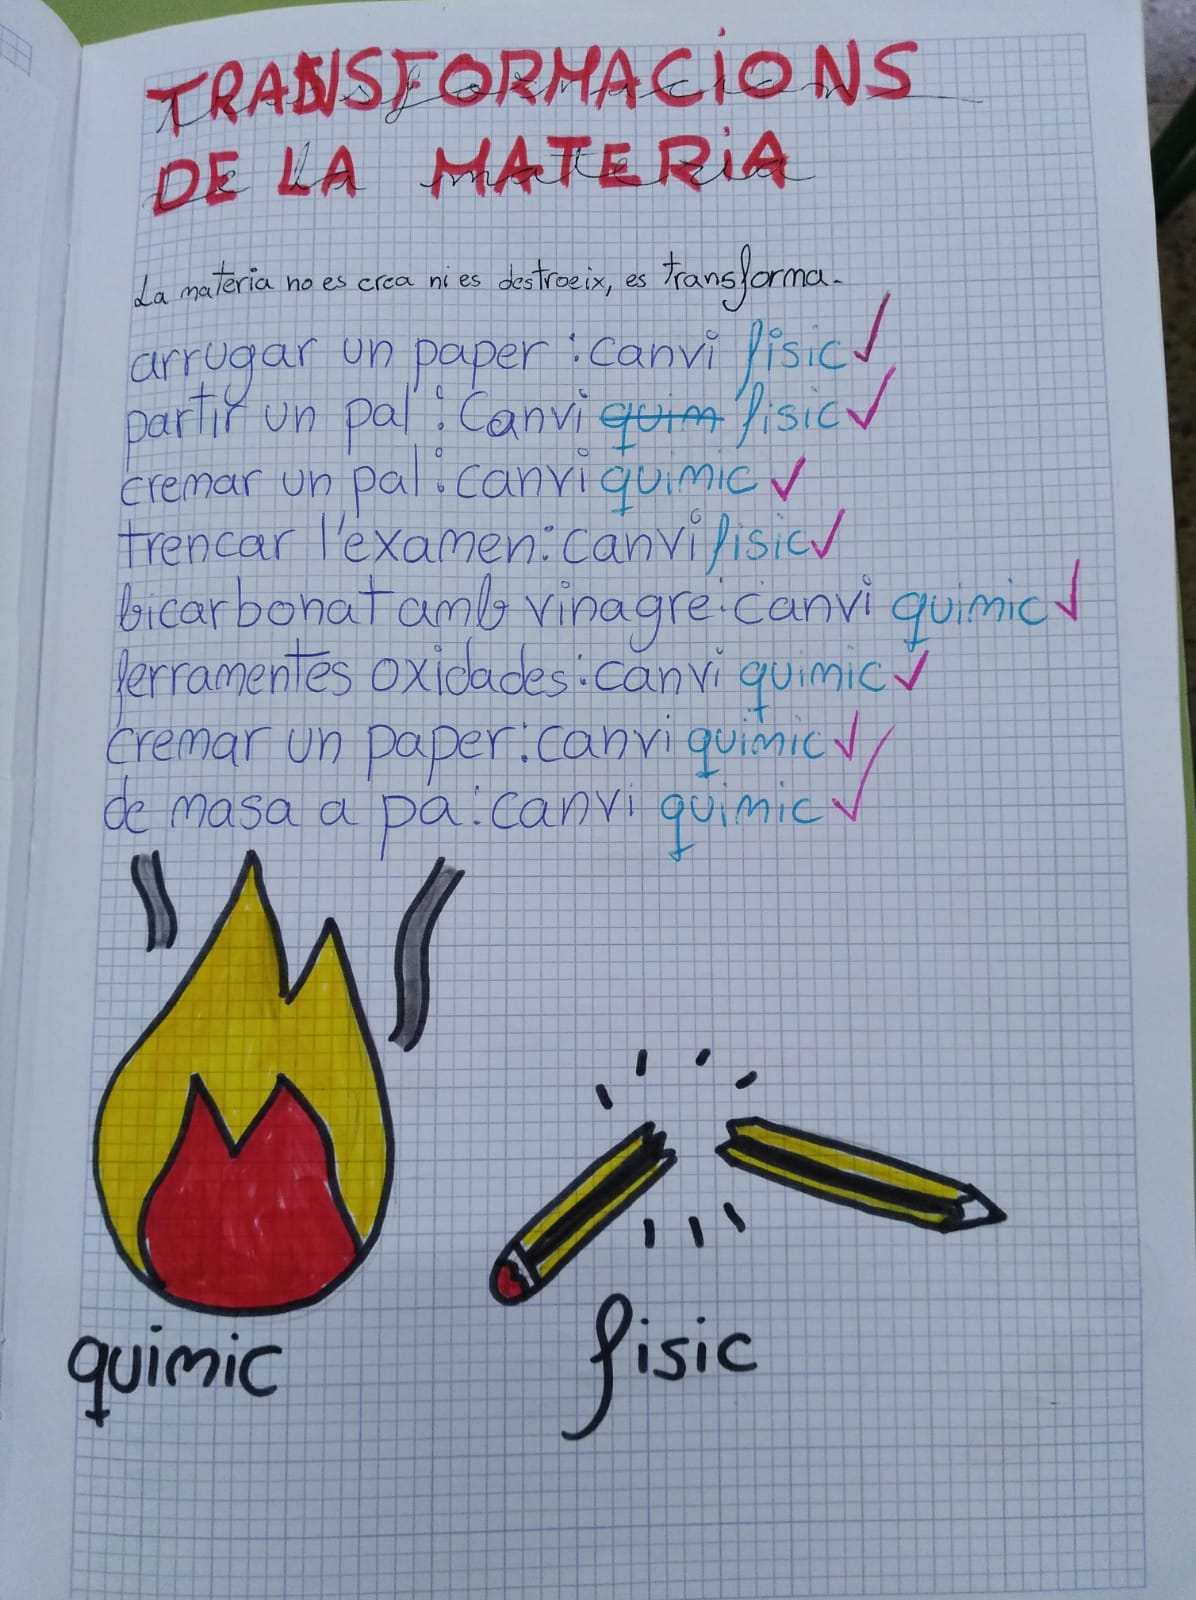 TRANSFORMACIONS
DE LA MATERIA
La materia no es crea ni es destroeix, es transforma.
arrugar un paper: canvi fisic
partir un pal: Canvi quim fisic
cremar un pal: canvi quimic
trencar l'examen: canvi fisic
bicarbonat amb vinagre: canvi quimic
ferramentes oxidades: canvi quimic
cremar un paper: canvi quimic
de masa a pa: canvi quimic
quimic
fisic